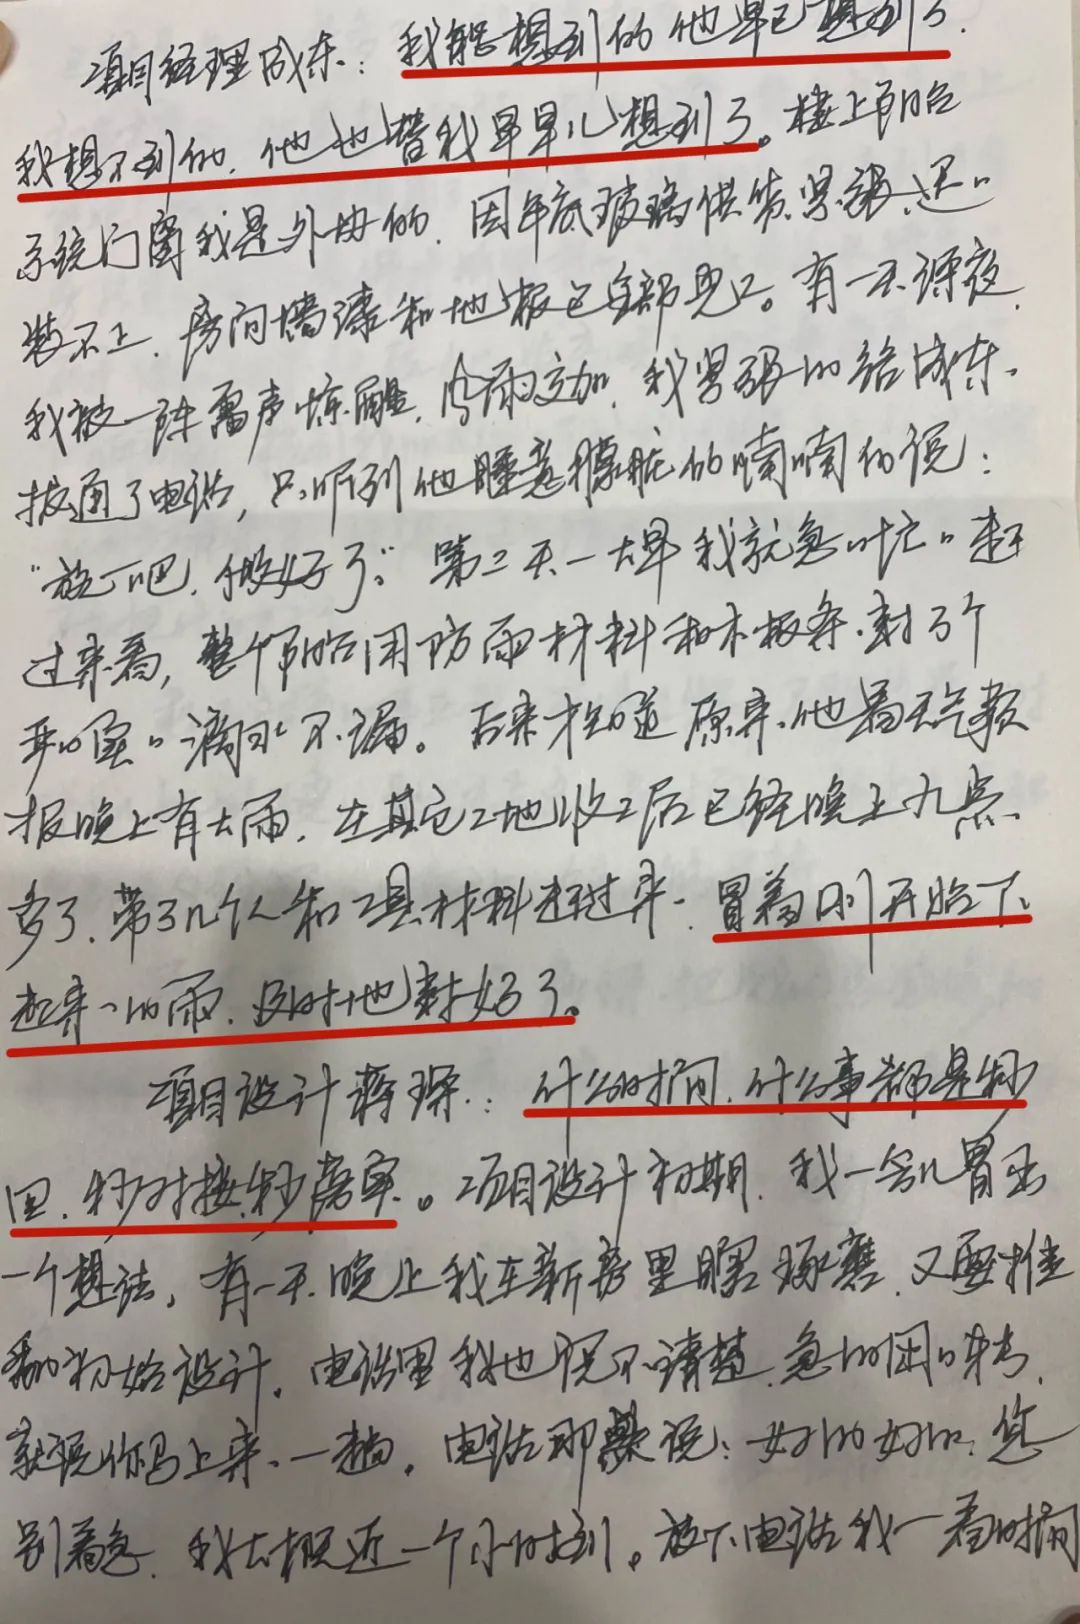 项目经理成东：我能想到的他早已想到了，
我想不到的，他也替我早早儿想到了。楼上阳台
系统门窗我是外协的，因年底玻璃供货紧张，还
装不上，房间墙漆和地板已全部完工。有一天深夜，
我被一阵雷声惊醒，风雨交加，我紧张的给成东
拨通了电话，只听到他睡意朦胧的喃喃的说：
“放心吧，做好了。”第二天一大早我就急忙赶
过来看，整个阳台用防雨材料和木板条封了个
严实，滴水不漏。后来才知道原来他看天气预
报晚上有大雨，在其它工地收工后已经晚上九点
多了，带了几个人和工具材料赶过来，冒着刚开始下
起来的雨，及时地封好了。
项目设计蒋琛：什么时间，什么事都是秒
回，秒对接，秒落实。项目设计初期，我一会儿冒出
一个想法，有一天晚上我在新房里瞎琢磨，又要推
翻初始设计，电话里我也说不清楚，急的团团转，
就说你马上来一趟。电话那头说：好的好的，您
别着急，我大概近一个小时到。放下电话我一看时间